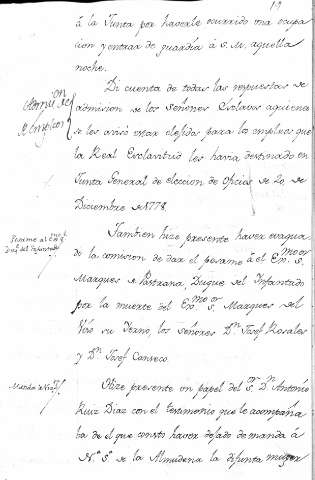 19
á la Junta por haverle ocurrido una ocupa
cion y entrar de guardia á S. M. aquella
noche.
Admisi.on de
Di cuenta de todas las respuestas de
admision de los señores Esclavos aquiene
se les avisó estar elejidos para los empleos que
la Real Esclavitud les havia destinado en
Junta General de eleccion de Oficios de 20 de
Diciembre de 1778.
Pesame al Ex.mo S.
Duq.e del Ynfantado
Tambien hize presente haver evaqua-
do la comision de dar el pesame á el Ex.mo S.or
Marques de Pastrana, Duque del Infantado
por la muerte del Ex.mo S.or Marques del
Viso su Yerno, los señores D.n Josef Rosales
y D.n Josef Canseco.
Manda de
Hize presente un papel del S.r D.n Antonio
Ruiz Diaz con el testimonio que le acompaña
ba de el que consto haver dejado de manda á
N.a S.a de la Almudena la difunta muger